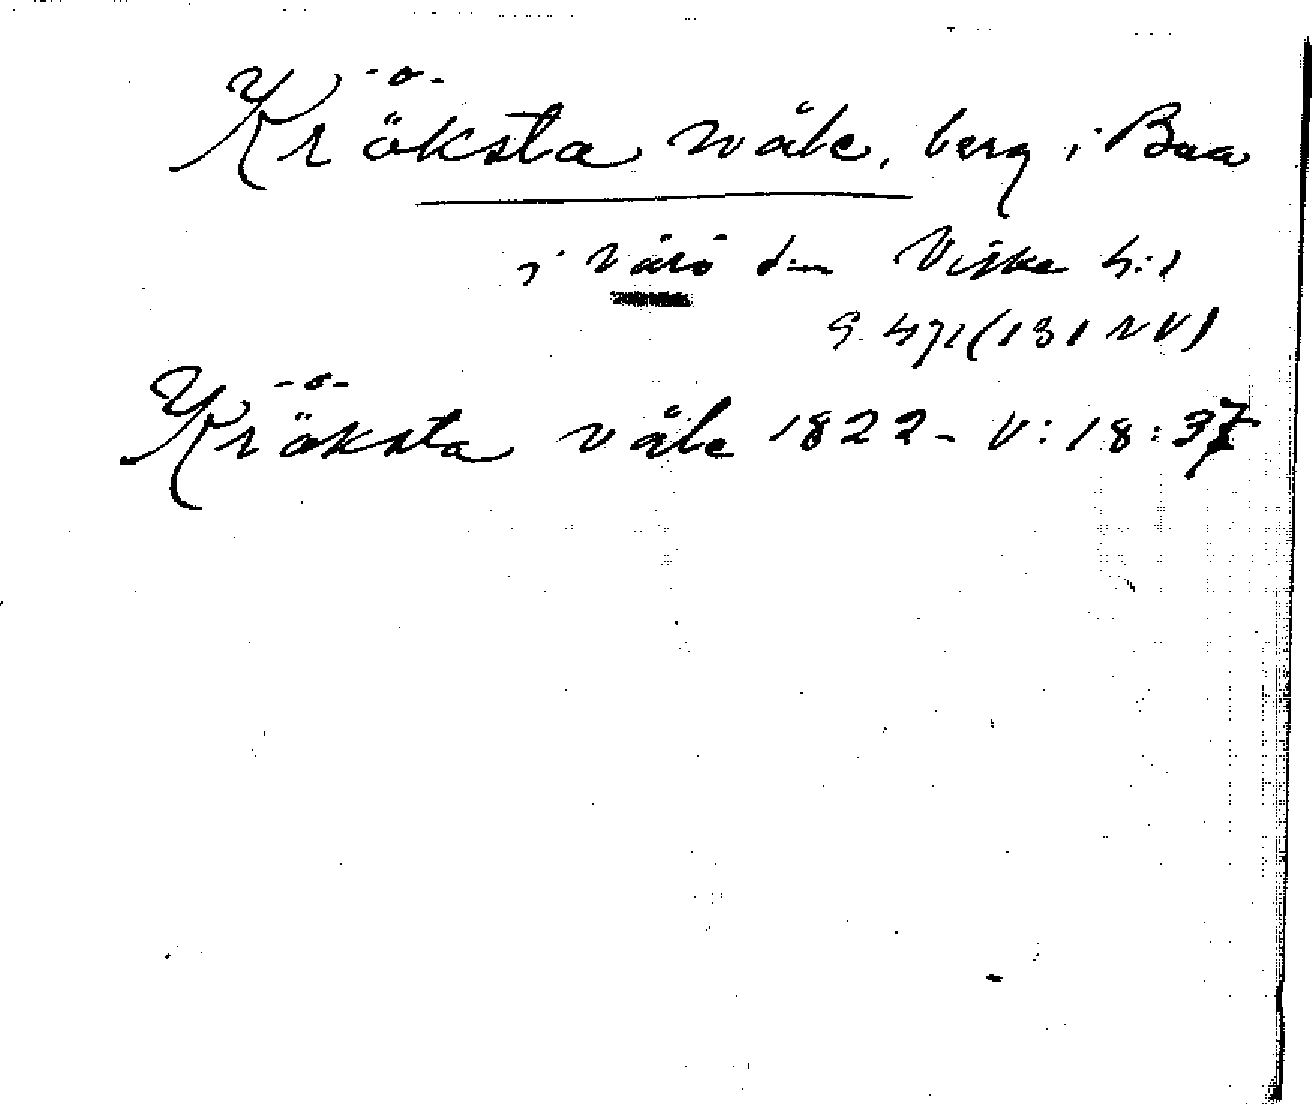 -o-
Kröksta wåle, berg i Bua
i Värö sn Viske h:d
G. 471 (131 NV)
-o-
Kröksta våle 1822 - V:18:37